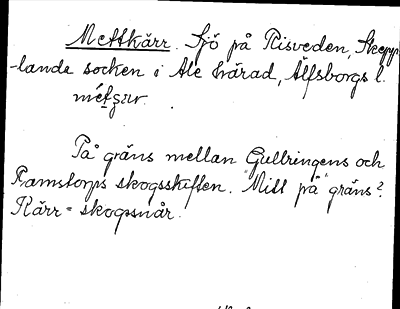 Mettkärr. Sjö på Risveden, Skepp-
landa socken i Ale härad, Älfsborgs l.
På gräns mellan Gullringens och
Ramstorps skogsskiften. "Mitt på" gräns?
Kärr = skogsnår.